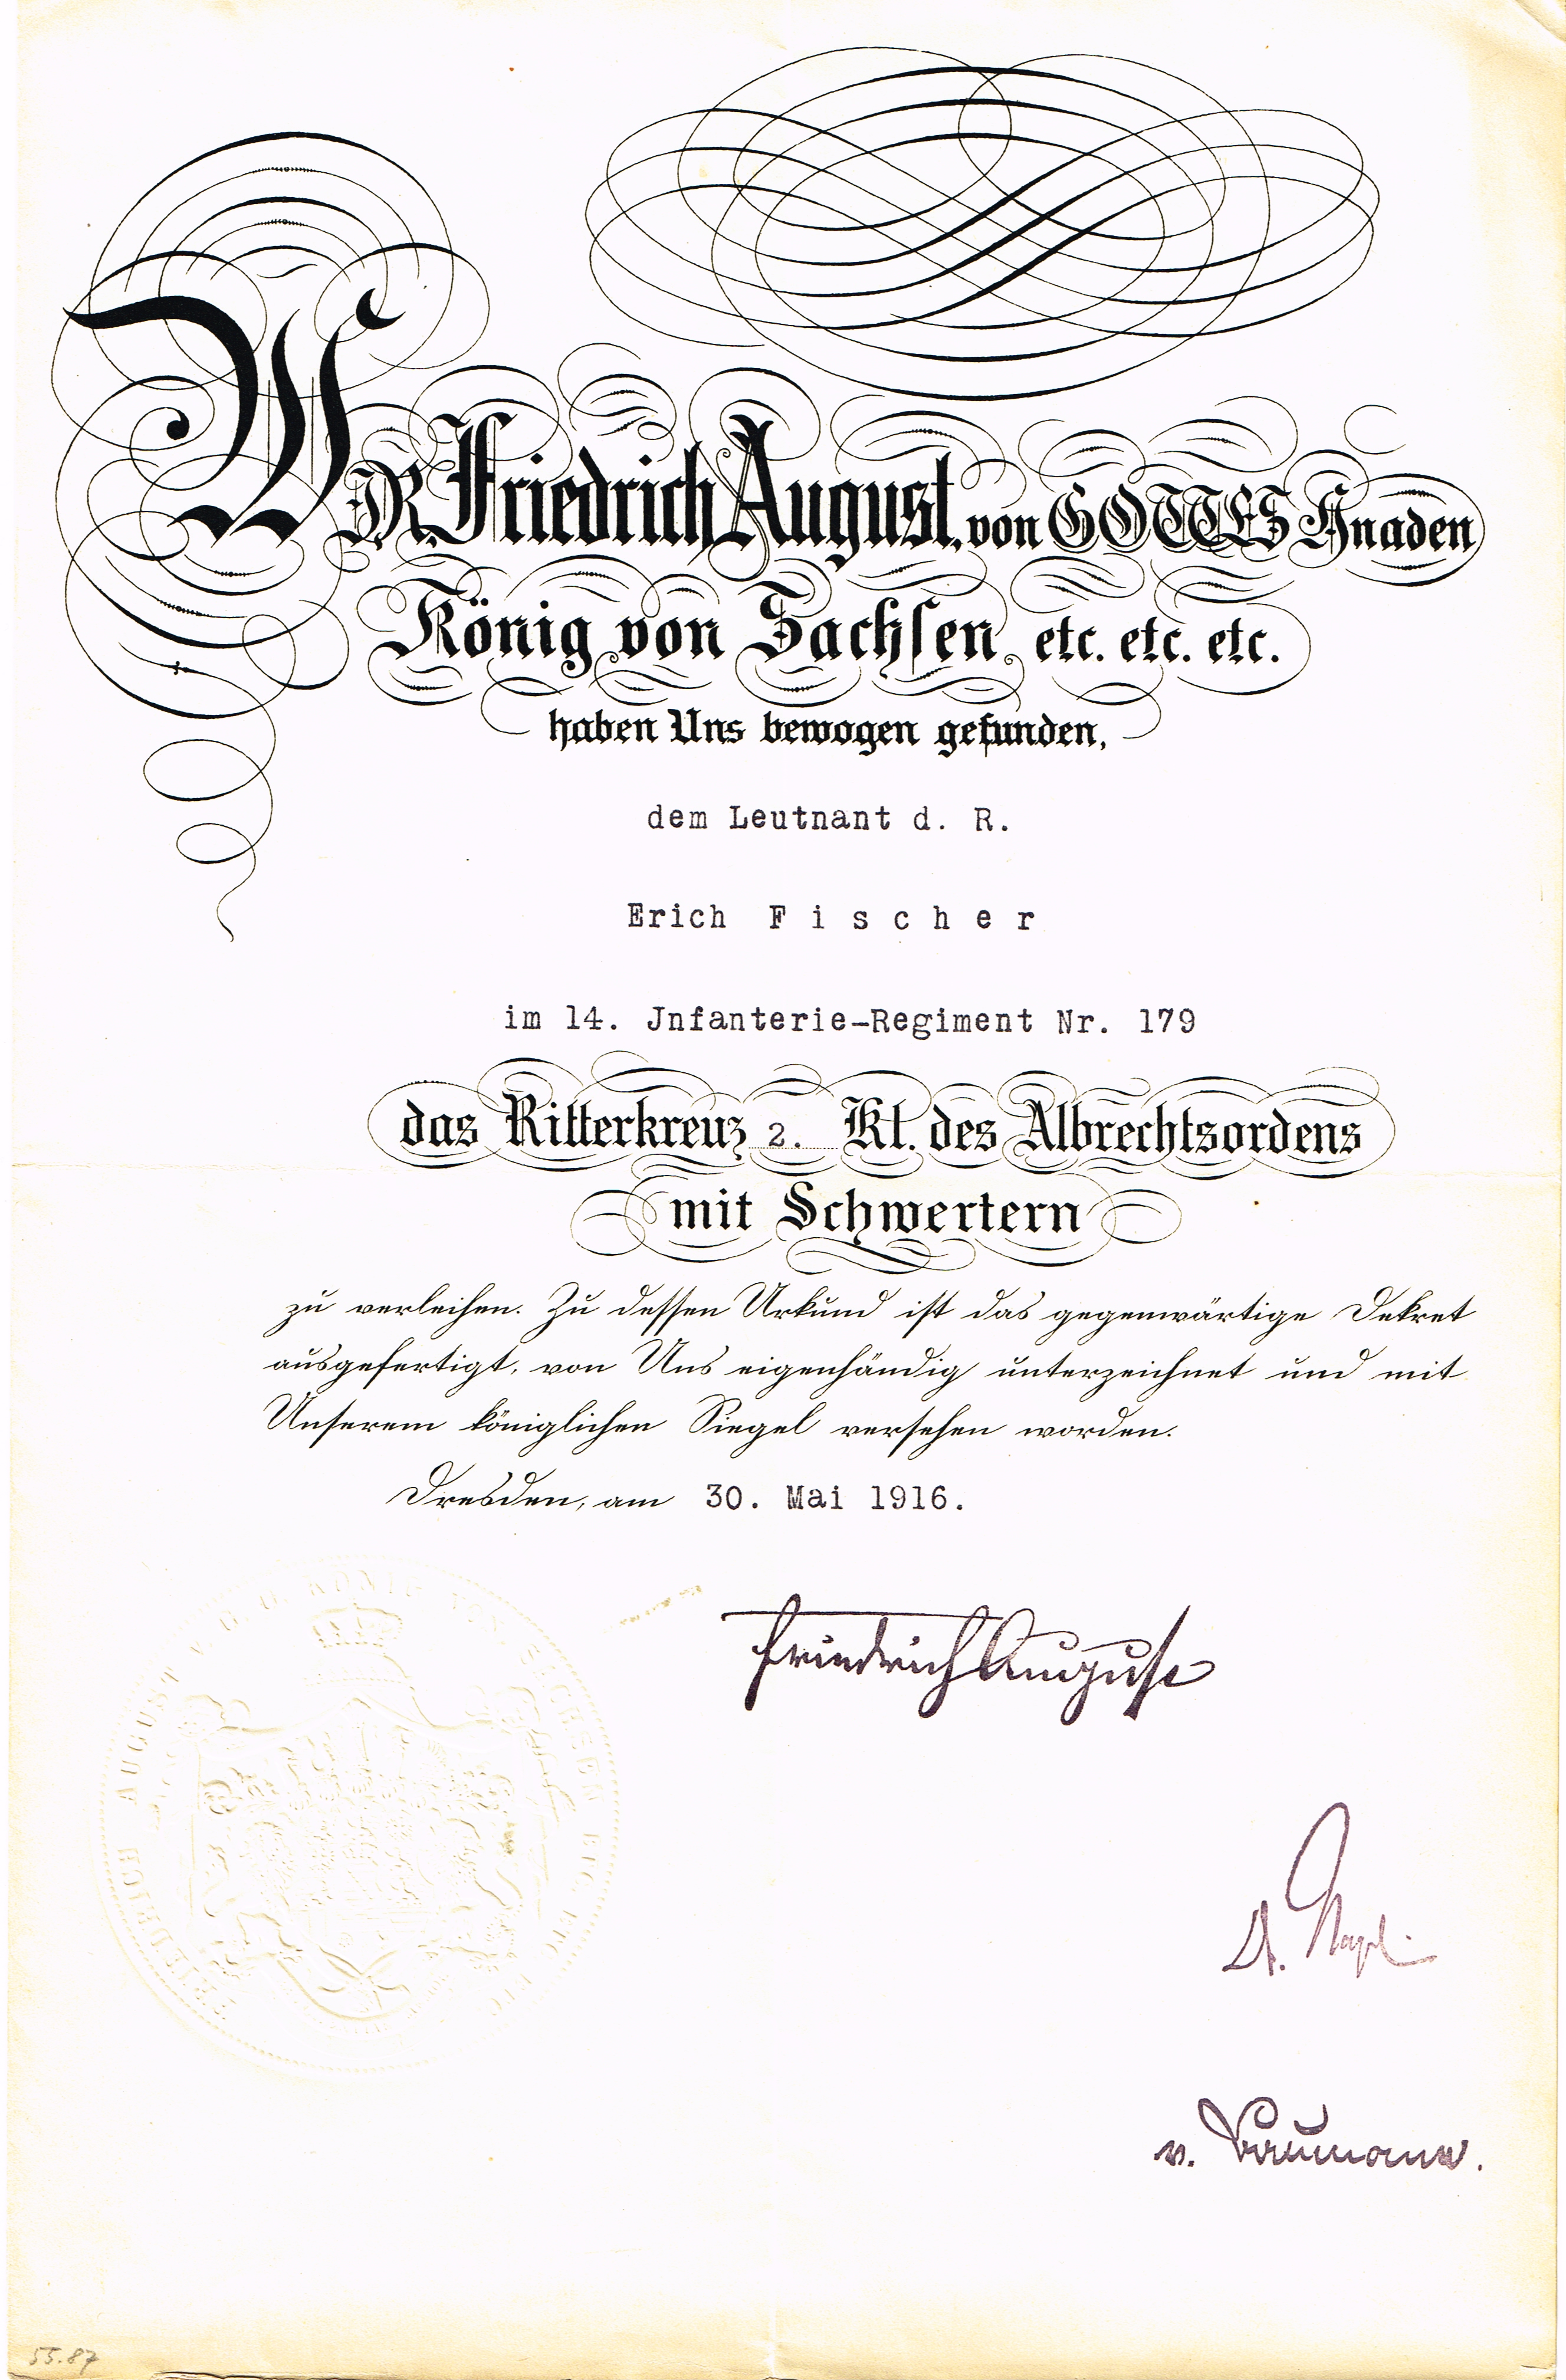 WIR, Friedrich August, von GOTTES Gnaden
König von Sachsen, etc. etc. etc.
haben Uns bewogen gefunden,
dem Leutnant d. R.
Erich F i s c h e r
im 14. Jnfanterie-Regiment Nr. 179
das Ritterkreuz 2. Kl. des Albrechtsordens
mit Schwertern
zu verleihen. Zu dessen Urkund ist das gegenwärtige Dekret
ausgefertigt, von Uns eigenhändig unterzeichnet und mit
Unserem königlichen Siegel versehen worden.
Dresden, am 30. Mai 1916.
Friedrich August
FRIEDRICH AUGUST V. G. G. KÖNIG VON SACHSEN ETC. ETC. ETC.
Dr.
v.
55.87